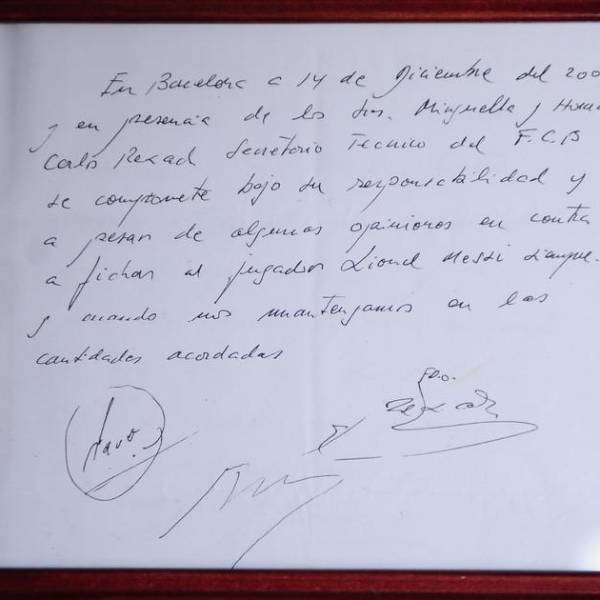 En Barcelona a 14 de Diciembre del 200
y en presencia de los Srs. Minguella y Hora
Carlos Rexach Secretario Tecnico del F.C.B
se compromete bajo su responsabilidad y
a pesar de algunas opiniones en contra
a fichar al jugador Lionel Messi siempre
y cuando nos mantengamos en las
cantidades acordadas
FDO.